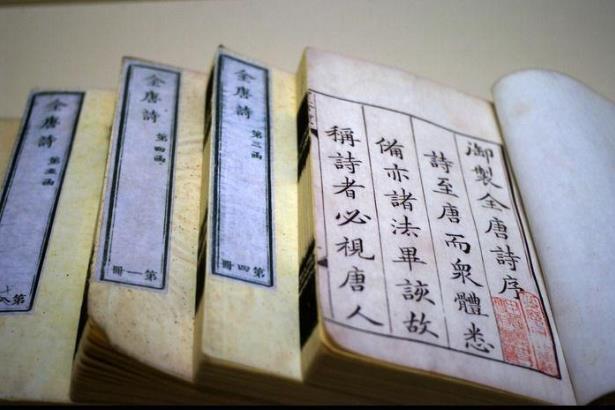 御製全唐詩序
詩至唐而衆體悉
備亦諸法畢該故
稱詩者必視唐人
全唐詩
第三函
第四冊
全唐詩
第四函
第一冊
全唐詩
第五函